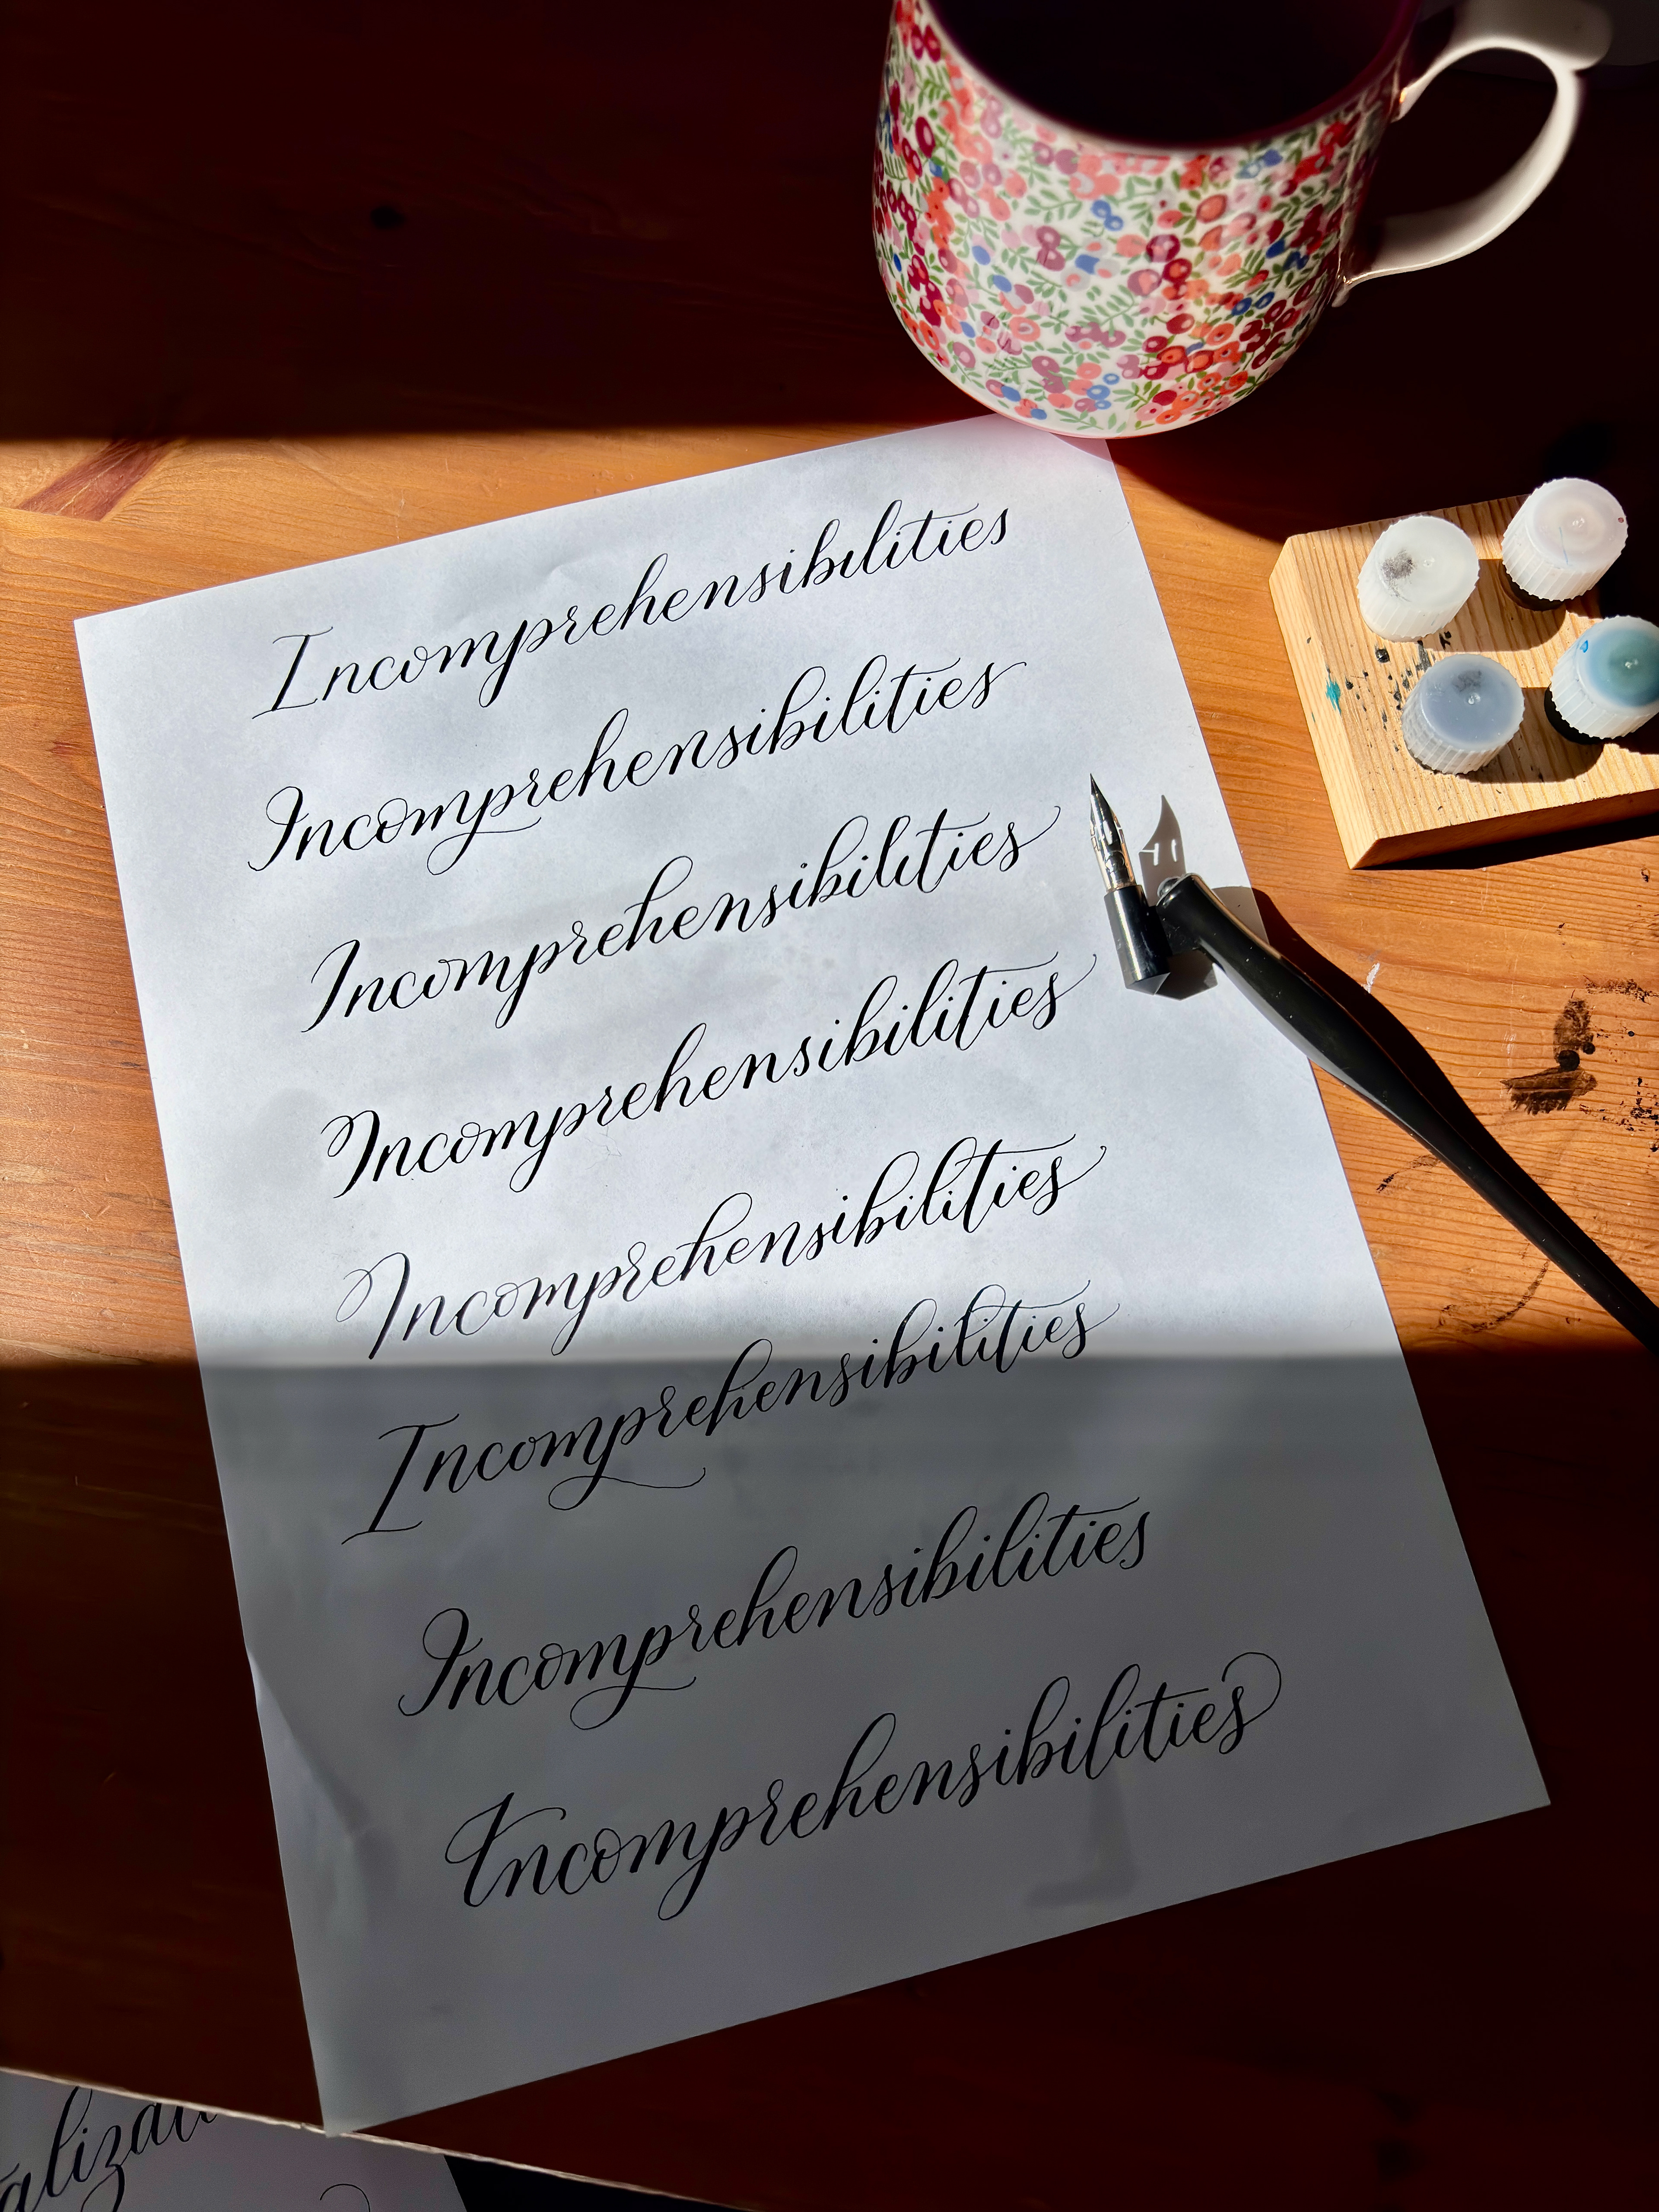 Incomprehensibilities
Incomprehensibilities
Incomprehensibilities
Incomprehensibilities
Incomprehensibilities
Incomprehensibilities
Incomprehensibilities
Incomprehensibilities